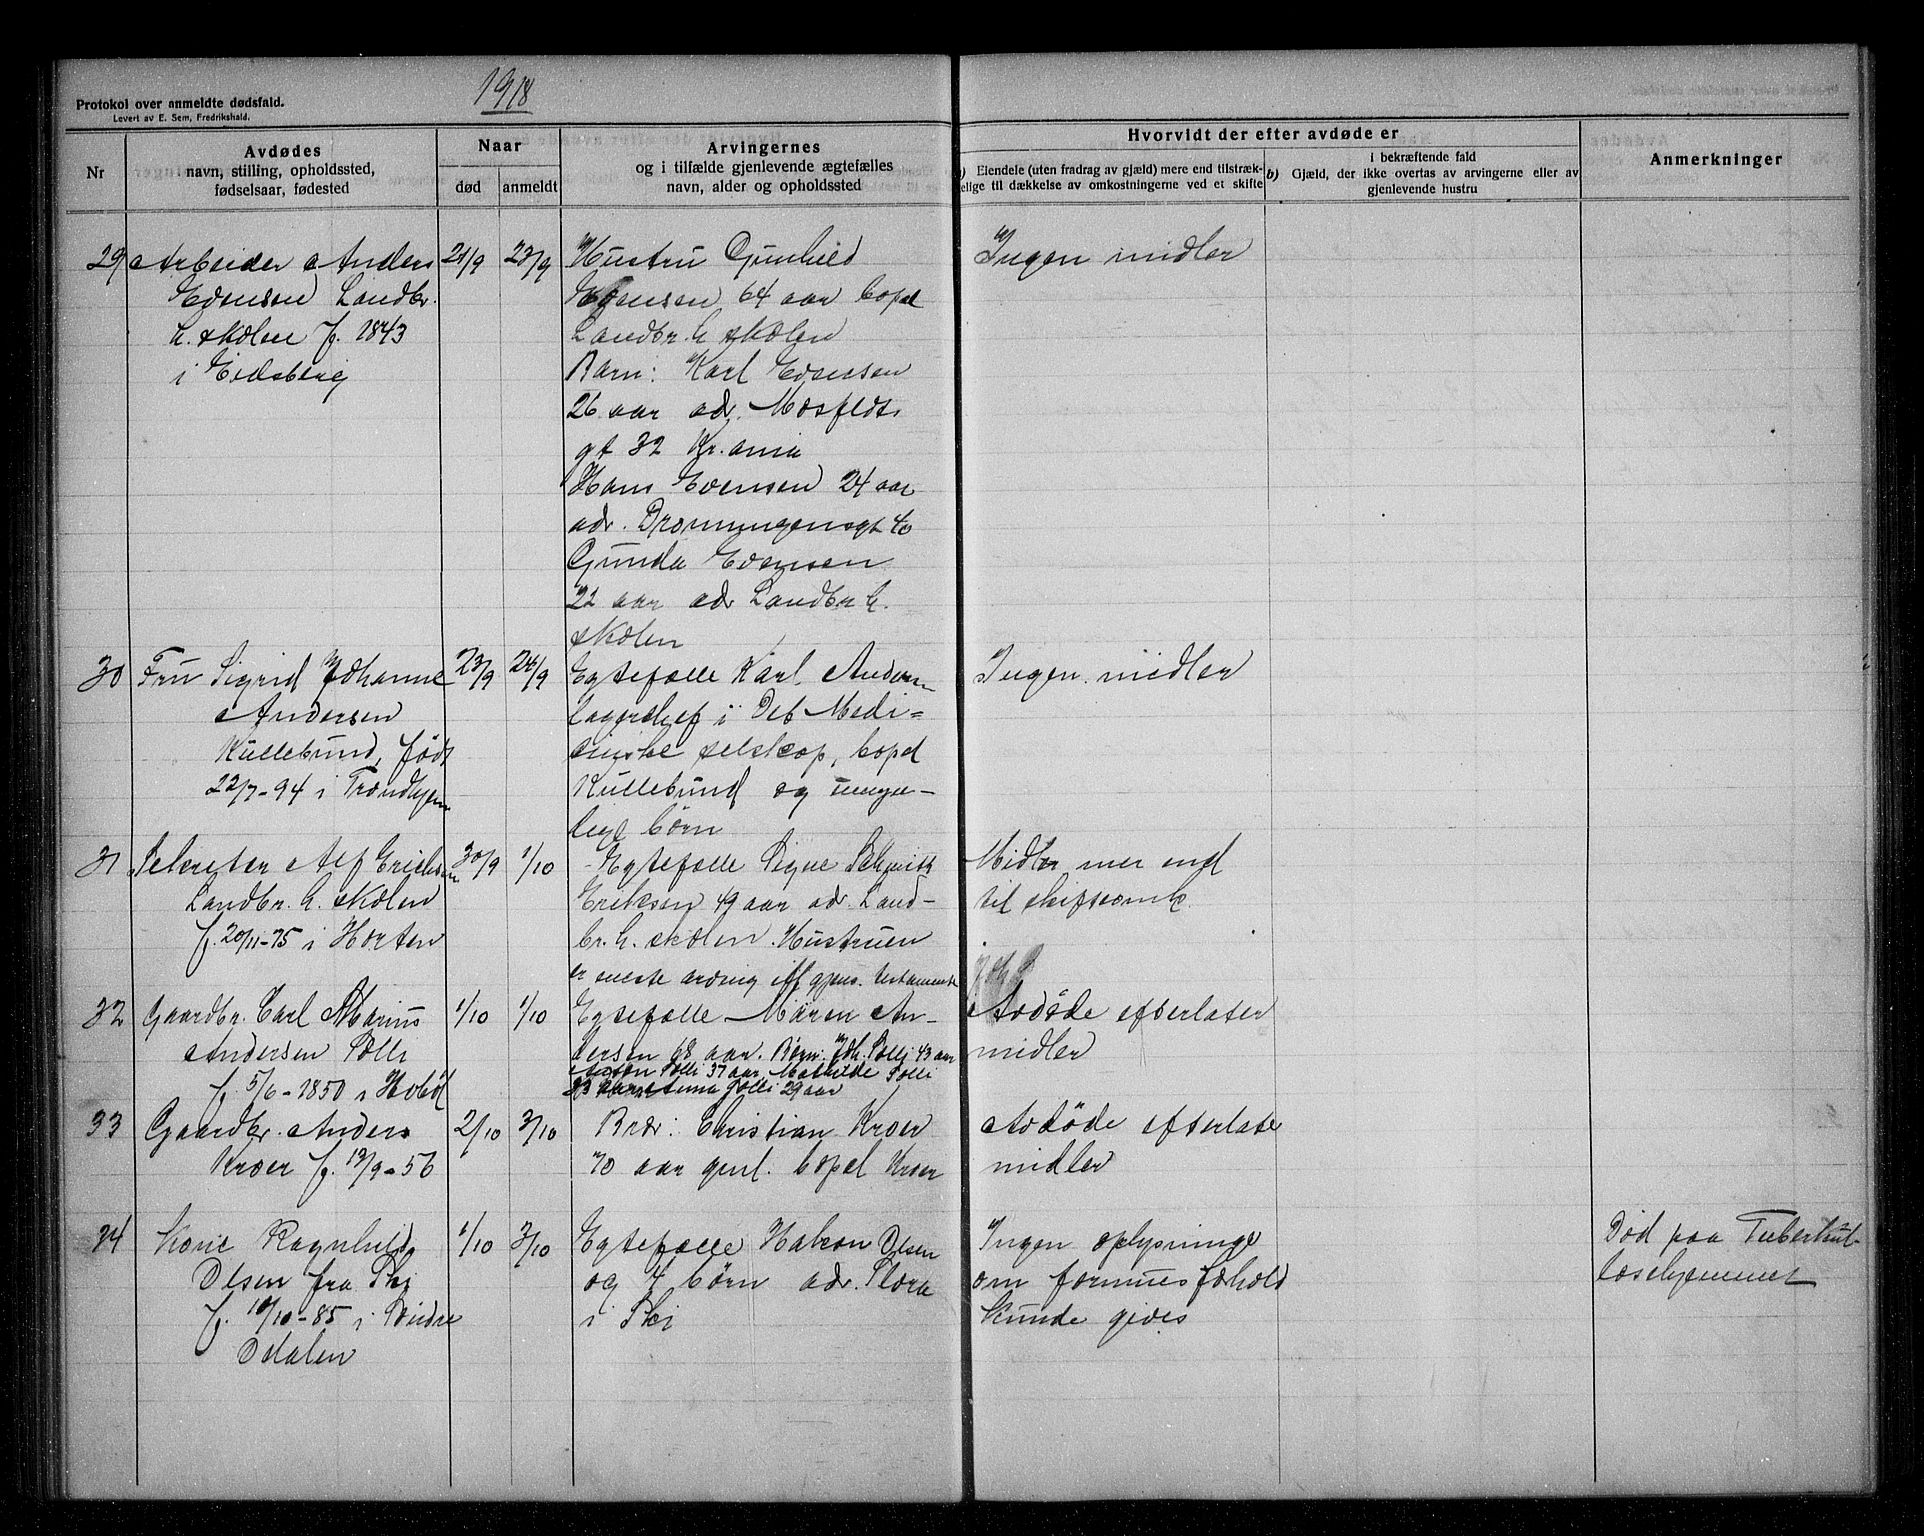 1918
Protokol over anmeldte dødsfald.
Levert av E. Sem, Fredrikshald.
Nr
Avdødes
navn, stilling, opholdssted,
fødselsaar, fødested
Naar
død
anmeldt
Arvingernes
og i tilfælde gjenlevende ægtefælles
navn, alder og opholdssted
Hvorvidt der efter avdøde er
a) Eiendele (uten fradrag av gjæld) mere end tilstræk-
kelige til dækkelse av omkostningerne ved et skifte
i bekræftende fald
b) Gjæld, der ikke overtas av arvingerne eller av
gjenlevende hustru
Anmerkninger
29
Arbeider Anders
Evensen Landbr.
h. skolen f. 1843
i Eidsberg
21/9
23/9
Hustru Gunhild
Evensen 64 aar bopæl
Landbr. h skolen
Barn: Karl Evensen
26 aar adr. Mosfeldts
gt 32 Kr.ania
Hans Evensen 24 aar
adr. Dronningensgt 40
Gunda Evensen
22 aar adr Landbr h.
skolen
Ingen midler
30
Fru Sigrid Johanne
Andersen
Kullebund, født
22/7-94 i Trondhjem
23/9
24/9
Egtefælle Karl Andersen
lagerchef i Det Medi=
cinske selskap, bopel
Kullebund og umyn-
dige børn
Ingen midler
31
Sekretær Alf Erichsen
Landbr. h. skolen
f. 20/11-75 i Horten
30/9
1/10
Egtefælle Signe Schmith
Eriksen 49 aar adr. Land-
br. h. skolen. Hustruen
er eneste arving iflg gjens. testamente
Midler mer end
til skifteomk.
32
Gaardbr. Carl Marius
Andersen Solli
f. 5/6-1850 i Hobøl
1/10
1/10
Egtefælle Maren An-
dersen 68 aar. Børn: Joh. Solli 43 aar
Anton Solli 37 aar, Mathilde Solli
33 aar Anna Solli 29 aar
Avdøde efterlater
midler
33
Gaardbr. Anders
Kroer f. 19/9-56
2/10
3/10
Bror: Christian Kroer
70 aar gml. bopæl Kroer
Avdøde efterlater
midler
34
Karie Ragnhild
Olsen fra Ski
f. 10/10-85 i Søndre
Odalen
1/10
3/10
Egtefælle Hakon Olsen
og 4 børn adr. Flora
i Ski
Ingen oplysninge
om formuesforhold
kunde gives
Død paa Tuberkul-
losehjemmet